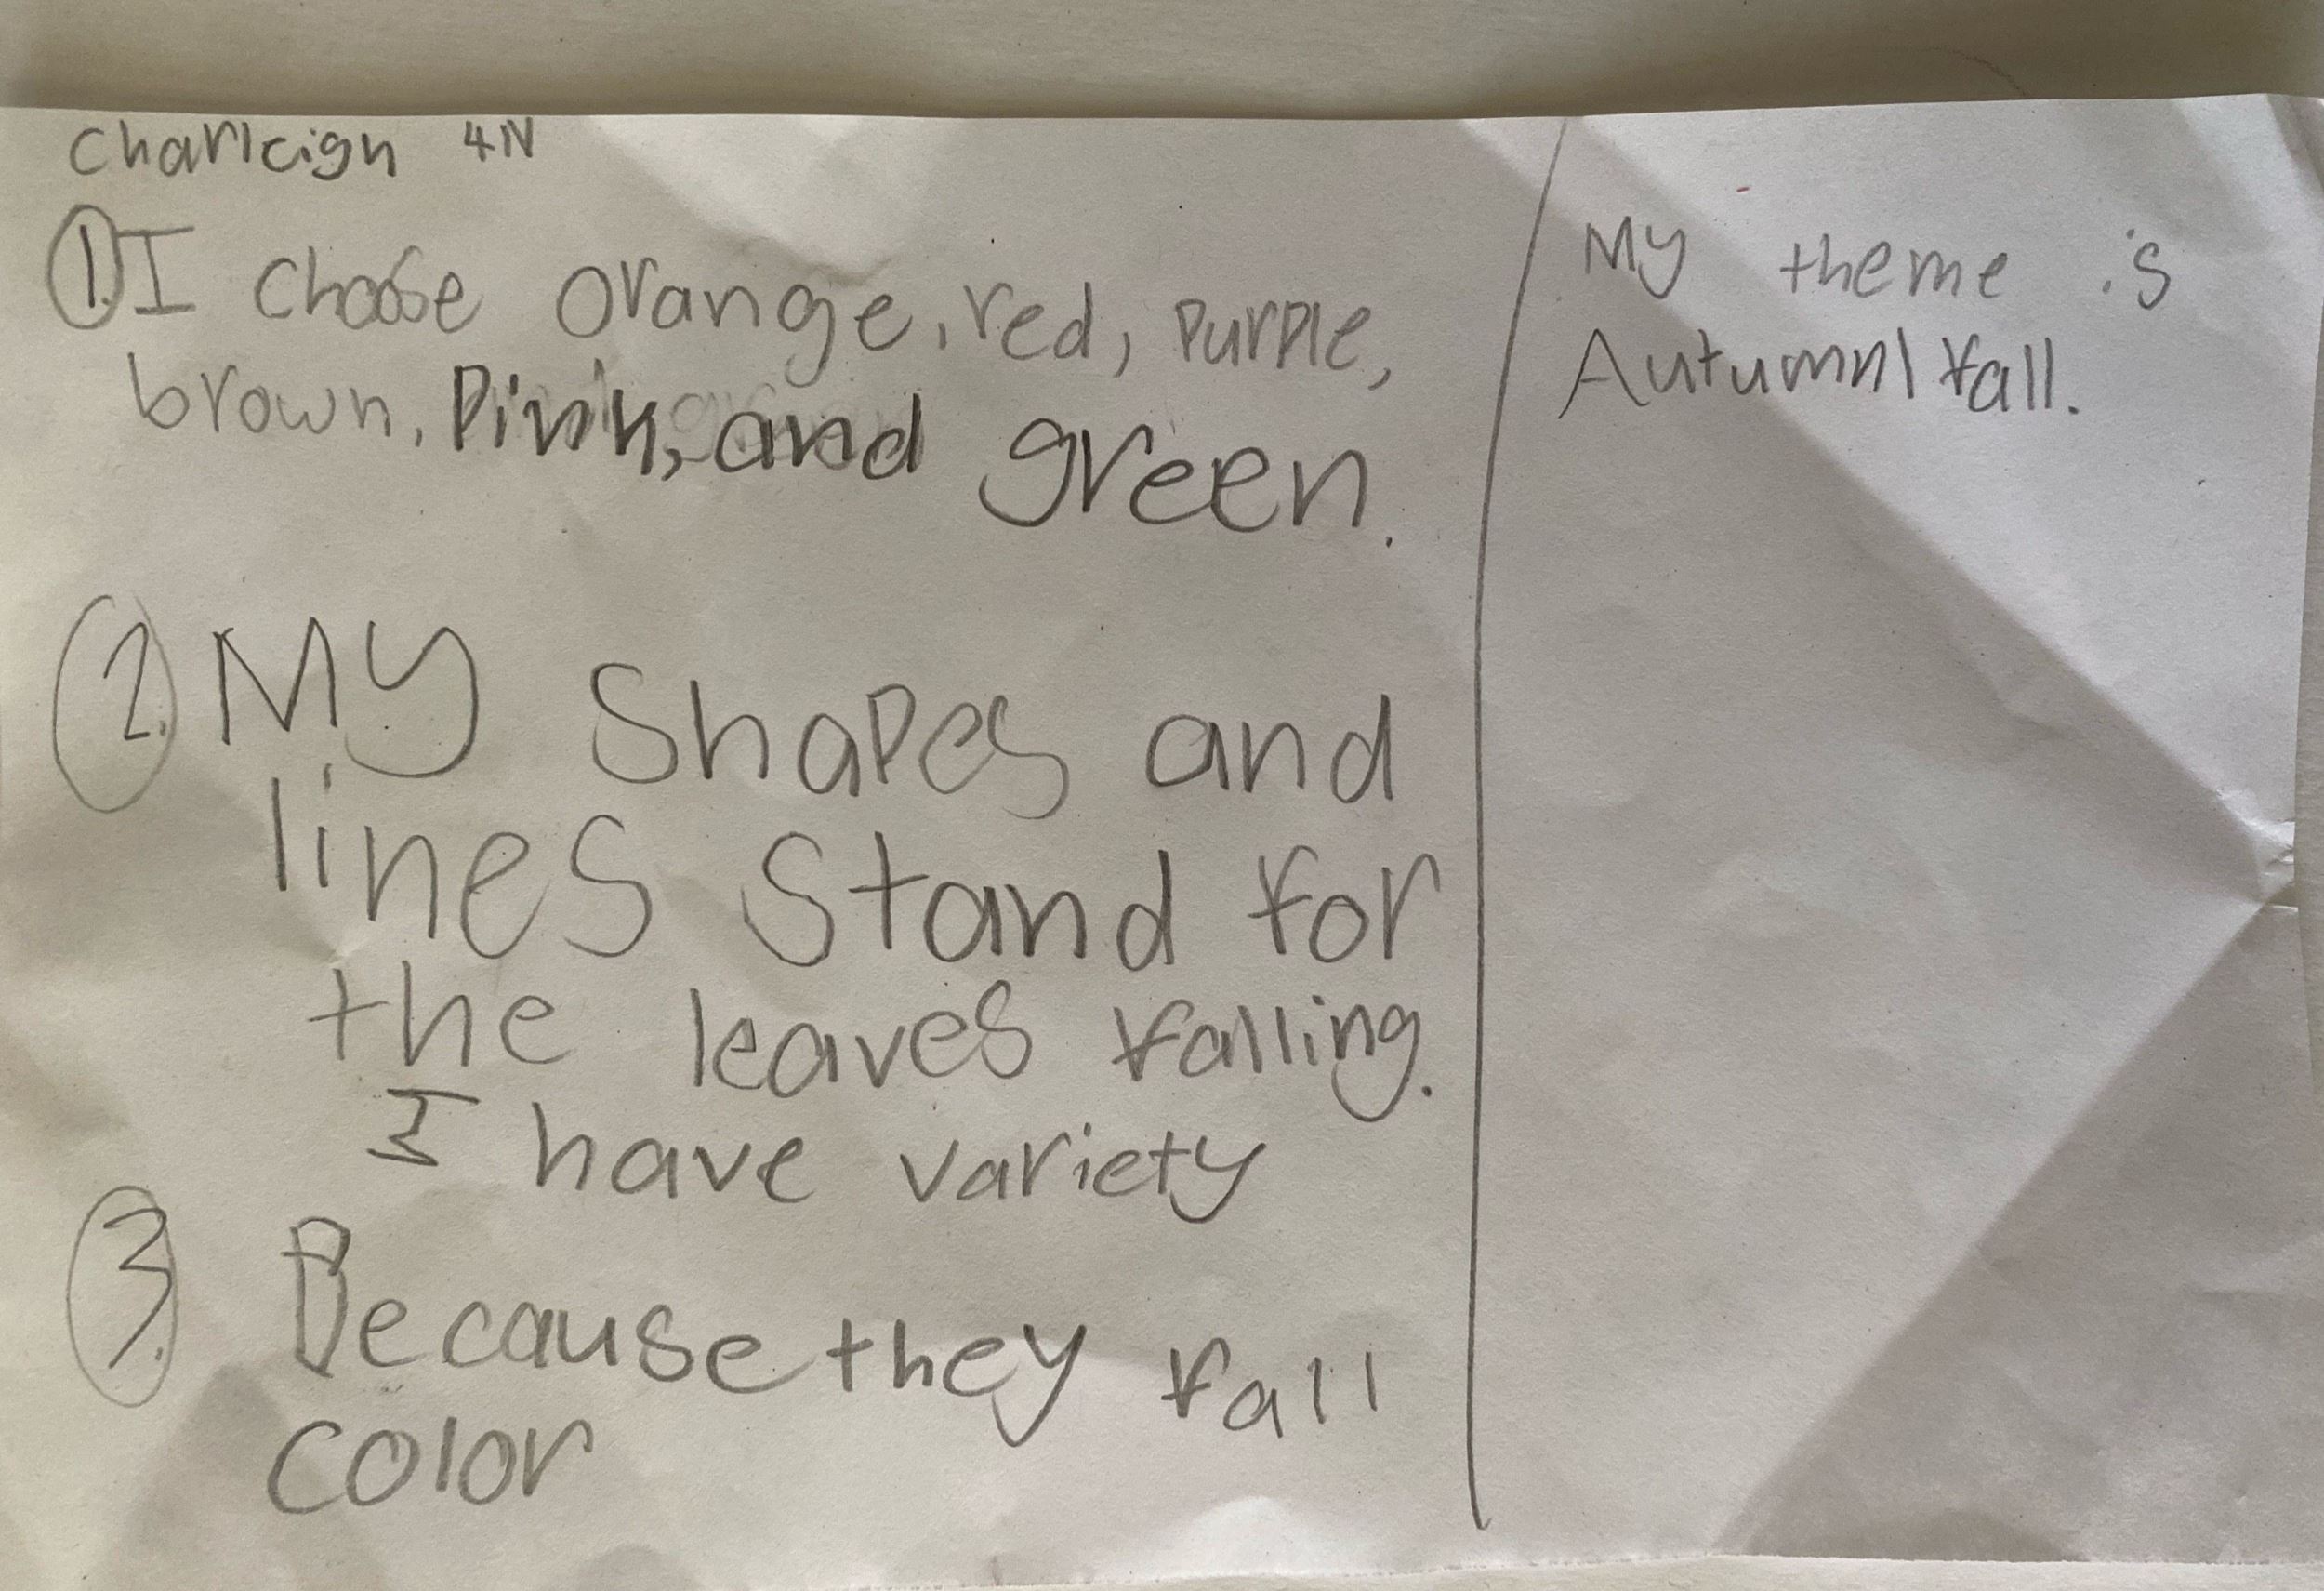 Charleigh 4N
1. I choose orange, red, purple,
brown, Pink, and green.
2. My shapes and
lines stand for
the leaves falling.
I have variety
3. Because they fall
color
My theme is
Autumn/fall.